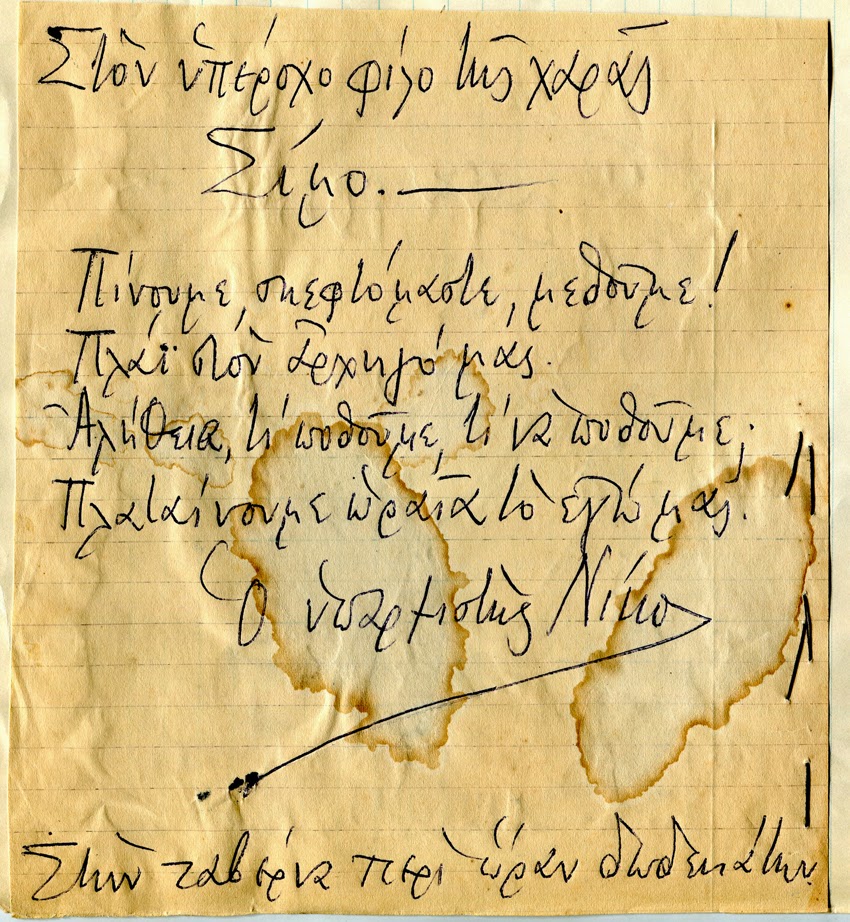 Στὸν ὑπέροχο φίλο τῆς χαρᾶς
Σίμο.
Πίνουμε, σκεφτόμαστε, μεθοῦμε!
Πλάϊ στὸν ἀρχηγό μας.
Ἀλήθεια, τί ποθοῦμε, τί νὰ ποθοῦμε;
Πλαταίνουμε ὡραῖα τὸ ἐγώ μας.
Ὁ ὑπαρξιστὴς Νίκο
Στὴν ταβέρνα περὶ ὥραν δωδεκάτην.